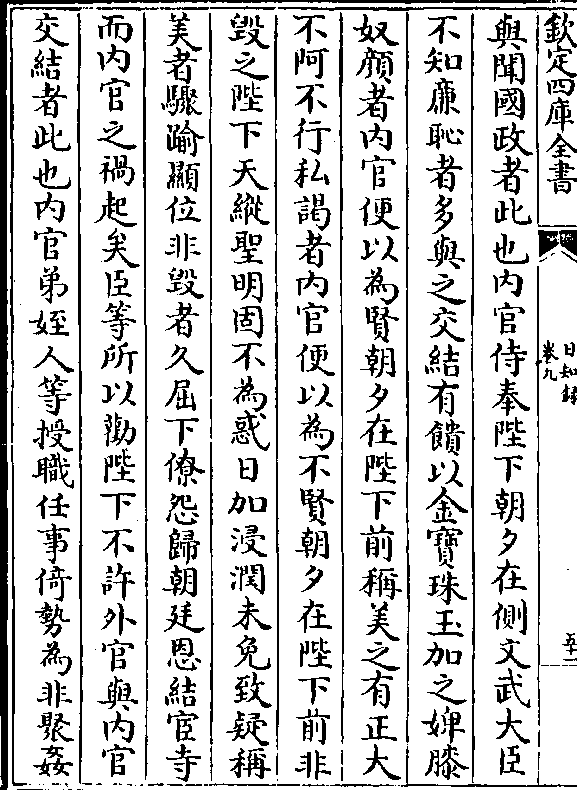 欽定四庫全書
日知録
卷九
五十一
與聞國政者此也内官侍奉陛下朝夕在側文武大臣
不知廉恥者多與之交結有饋以金寶珠玉加之婢膝
奴顔者内官便以為賢朝夕在陛下前稱美之有正大
不阿不行私謁者内官便以為不賢朝夕在陛下前非
毁之陛下天縱聖明固不為惑日加浸潤未免致疑稱
美者驟踰顯位非毁者久屈下僚怨歸朝廷恩結宦寺
而内官之禍起矣臣等所以勸陛下不許外官與内官
交結者此也内官弟姪人等授職任事倚勢為非聚姦